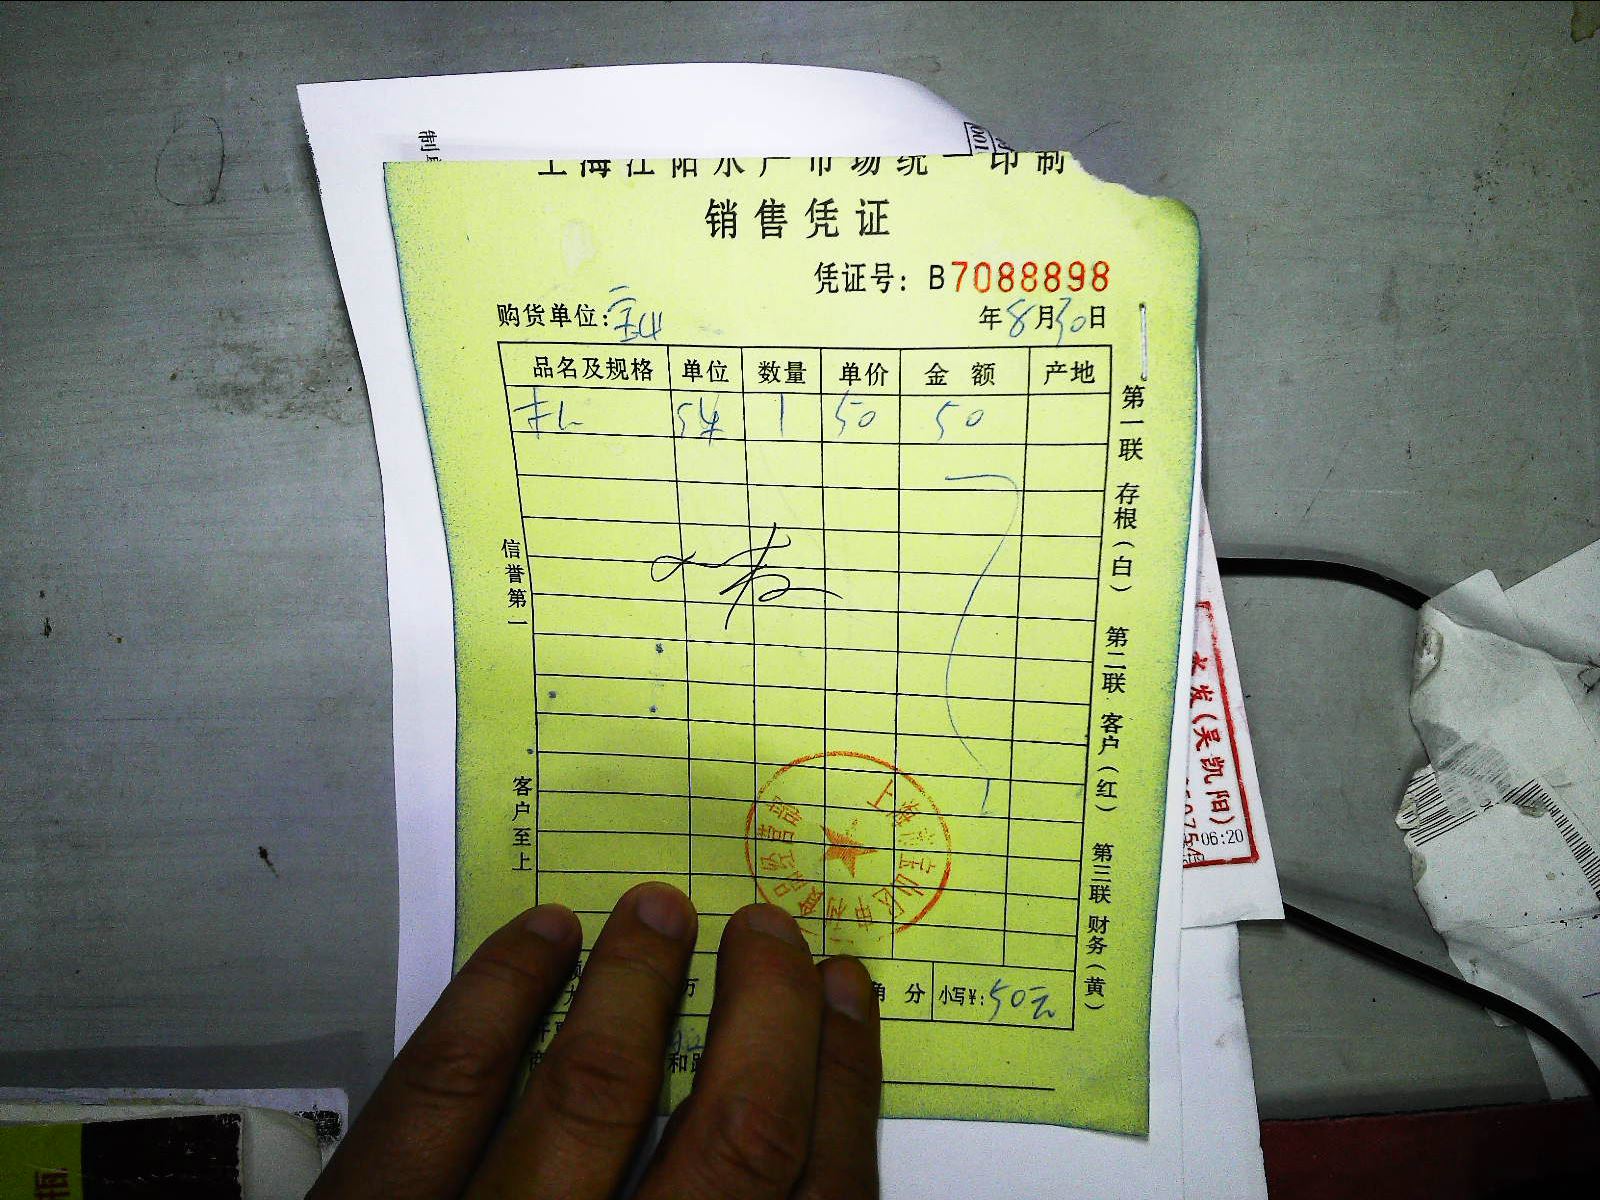 上海江阳水产市场统一印制
销售凭证
凭证号：B7088898
购货单位： 年8月30日
品名及规格 单位 数量 单价 金额 产地
1 50 50
信誉第一
客户至上
第一联 存根（白） 第二联 客户（红） 第三联 财务（黄）
上海市宝山区
万 角 分 小写¥：50元
和
发(吴凯阳)
06:20